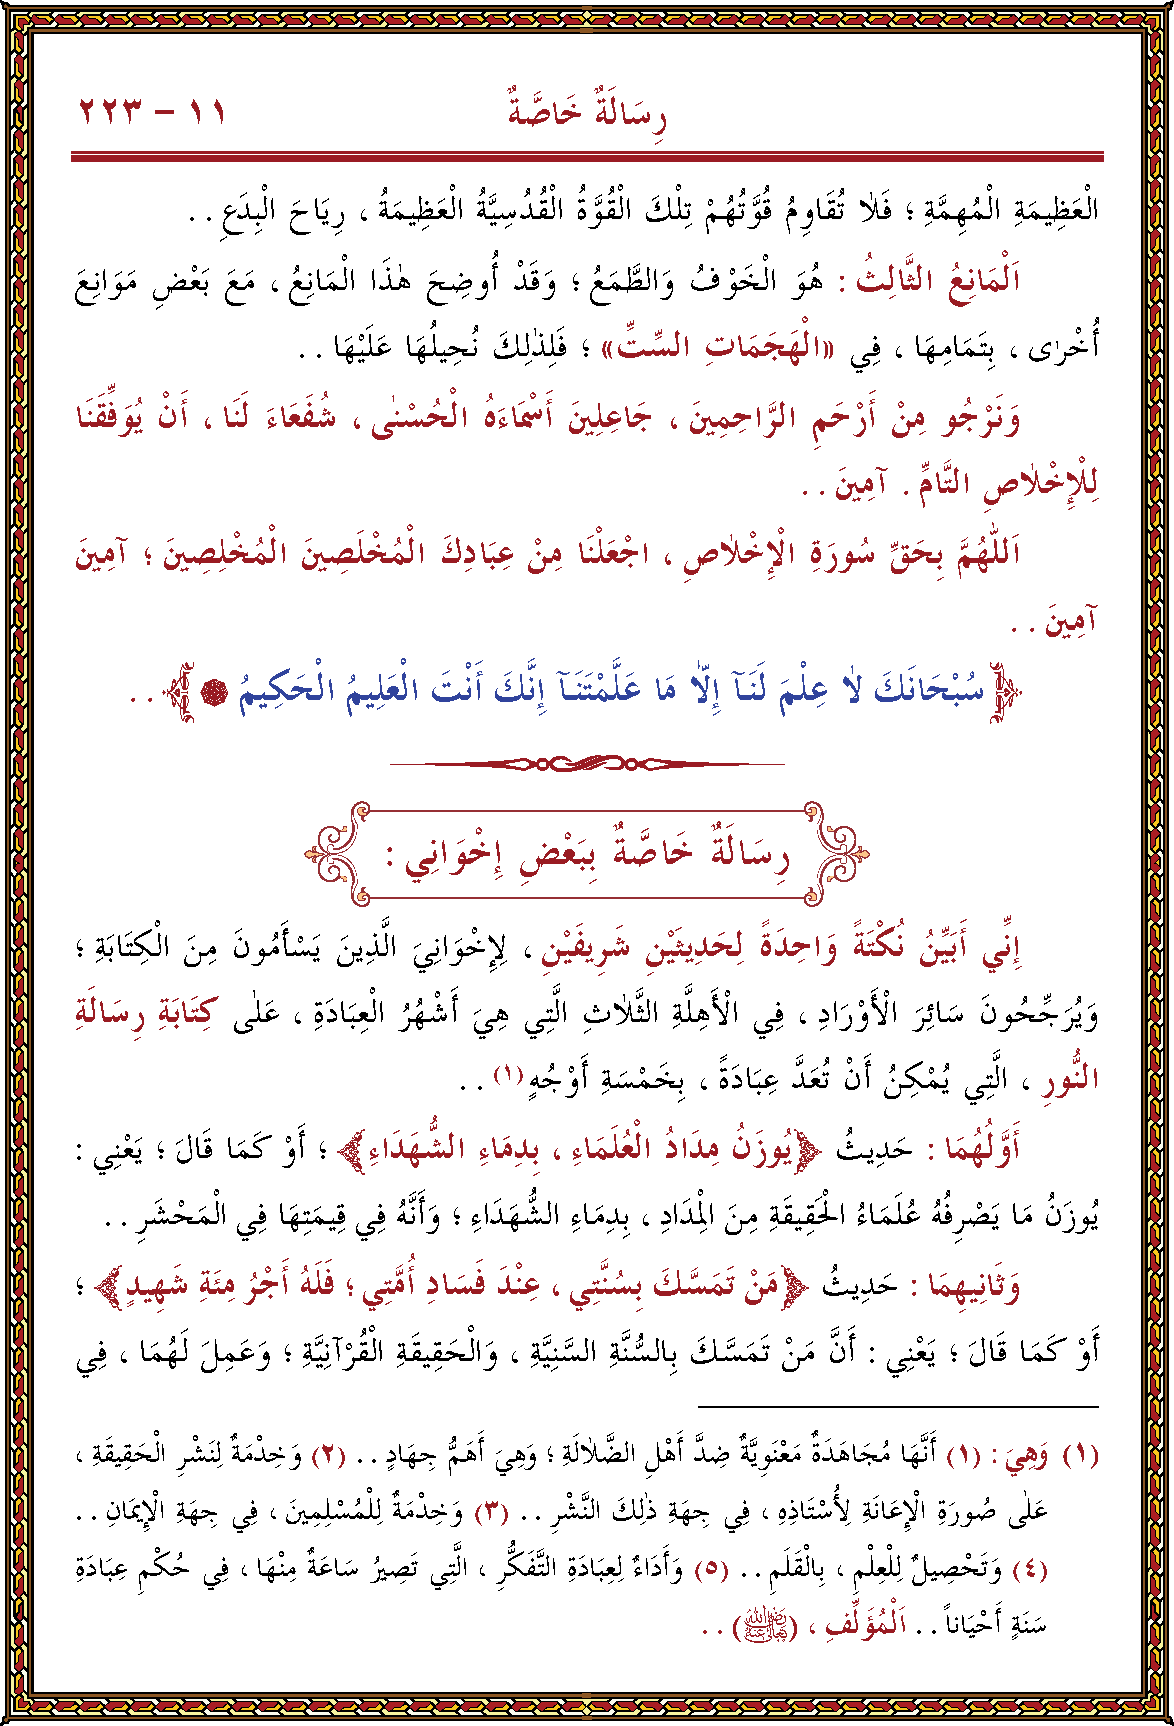 رِسَالَةٌ خَاصَّةٌ ١١ - ٢٢٣
الْعَظِيمَةِ الْمُهِمَّةِ ؛ فَلَا تُقَاوِمُ قُوَّتُهُمْ تِلْكَ الْقُوَّةَ الْقُدُسِيَّةُ الْعَظِيمَةُ ، رِيَاحَ الْبِدَعِ . .
اَلْمَانِعُ الثَّالِثُ : هُوَ الْخَوْفُ وَالطَّمَعُ ؛ وَقَدْ أُوضِحَ هٰذَا الْمَانِعُ ، مَعَ بَعْضِ مَوَانِعَ
أُخْرٰى ، بِتَمَامِهَا ، فِي «الْهَجَمَاتِ السِّتِّ» ؛ فَلِذٰلِكَ نُحِيلُهَا عَلَيْهَا . .
وَنَرْجُو مِنْ أَرْحَمِ الرَّاحِمِينَ ، جَاعِلِينَ أَسْمَاءَهُ الْحُسْنٰى ، شُفَعَاءَ لَنَا ، أَنْ يُوَفِّقَنَا
لِلْإِخْلَاصِ التَّامِّ . آمِينَ . .
اَللّٰهُمَّ بِحَقِّ سُورَةِ الْإِخْلَاصِ ، اجْعَلْنَا مِنْ عِبَادِكَ الْمُخْلَصِينَ الْمُخْلِصِينَ ؛ آمِينَ
آمِينَ . .
﴿سُبْحَانَكَ لَا عِلْمَ لَنَـآ إِلَّا مَا عَلَّمْتَنَـآ إِنَّكَ أَنْتَ الْعَلِيمُ الْحَكِيمُ﴾ . .
رِسَالَةٌ خَاصَّةٌ بِبَعْضِ إِخْوَانِي :
إِنِّي أُبَيِّنُ نُكْتَةً وَاحِدَةً لِحَدِيثَيْنِ شَرِيفَيْنِ ، لِإِخْوَانِيَ الَّذِينَ يَسْأَمُونَ مِنَ الْكِتَابَةِ ؛
وَيُرَجِّحُونَ سَائِرَ الْأَوْرَادِ ، فِي الْأَهِلَّةِ الثَّلَاثِ الَّتِي هِيَ أَشْهُرُ الْعِبَادَةِ ، عَلٰى كِتَابَةِ رِسَالَةِ
النُّورِ ، الَّتِي يُمْكِنُ أَنْ تُعَدَّ عِبَادَةً ، بِخَمْسَةِ أَوْجُهٍ(١) . .
أَوَّلُهُمَا : حَدِيثُ ﴿يُوزَنُ مِدَادُ الْعُلَمَاءِ ، بِدِمَاءِ الشُّهَدَاءِ﴾ ؛ أَوْ كَمَا قَالَ ؛ يَعْنِي :
يُوزَنُ مَا يَصْرِفُهُ عُلَمَاءُ الْحَقِيقَةِ مِنَ الْمِدَادِ ، بِدِمَاءِ الشُّهَدَاءِ ؛ وَأَنَّهُ فِي قِيمَتِهَا فِي الْمَحْشَرِ . .
وَثَانِيهِمَا : حَدِيثُ ﴿مَنْ تَمَسَّكَ بِسُنَّتِي ، عِنْدَ فَسَادِ أُمَّتِي ؛ فَلَهُ أَجْرُ مِئَةِ شَهِيدٍ﴾ ؛
أَوْ كَمَا قَالَ ؛ يَعْنِي : أَنَّ مَنْ تَمَسَّكَ بِالسُّنَّةِ السَّنِيَّةِ ، وَالْحَقِيقَةِ الْقُرْآنِيَّةِ ؛ وَعَمِلَ لَهُمَا ، فِي
(١) وَهِيَ : (١) أَنَّهَا مُجَاهَدَةٌ مَعْنَوِيَّةٌ ضِدَّ أَهْلِ الضَّلَالَةِ ؛ وَهِيَ أَهَمُّ جِهَادٍ . . (٢) وَخِدْمَةٌ لِنَشْرِ الْحَقِيقَةِ ،
عَلٰى صُورَةِ الْإِعَانَةِ لِأُسْتَاذِهِ ، فِي جِهَةِ ذٰلِكَ النَّشْرِ . . (٣) وَخِدْمَةٌ لِلْمُسْلِمِينَ ، فِي جِهَةِ الْإِيمَانِ . .
(٤) وَتَحْصِيلٌ لِلْعِلْمِ ، بِالْقَلَمِ . . (٥) وَأَدَاءٌ لِعِبَادَةِ التَّفَكُّرِ ، الَّتِي تَصِيرُ سَاعَةٌ مِنْهَا ، فِي حُكْمِ عِبَادَةِ
سَنَةٍ أَحْيَاناً . . اَلْمُؤَلِّفِ ، (رَضِيَ اللهُ تَعَالَى عَنْهُ) . .